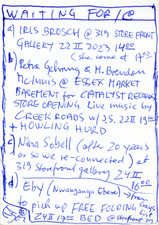 WAITING FOR/@
a) IRIS BROSCH @ 319 STORE FRONT
GALLERY 22 II 2023 14:00
(she came at 17:00)
b) Petra Gehrung & M. Brendan
McInnis @ ESSEX MARKET
BASEMENT for CATALYST RECORDS
STORE OPENING Live music by
CREEK ROADS w/ 25. 22 II 19:00
+ HOWLING HURD
c) Nina Sobell (after 20 years
or so we re-connected) at
319 Storefront gallery 24 II
d) Eby 16:00
to pick up FREE FOLDING
24 II 17:00 BED @ Storefront